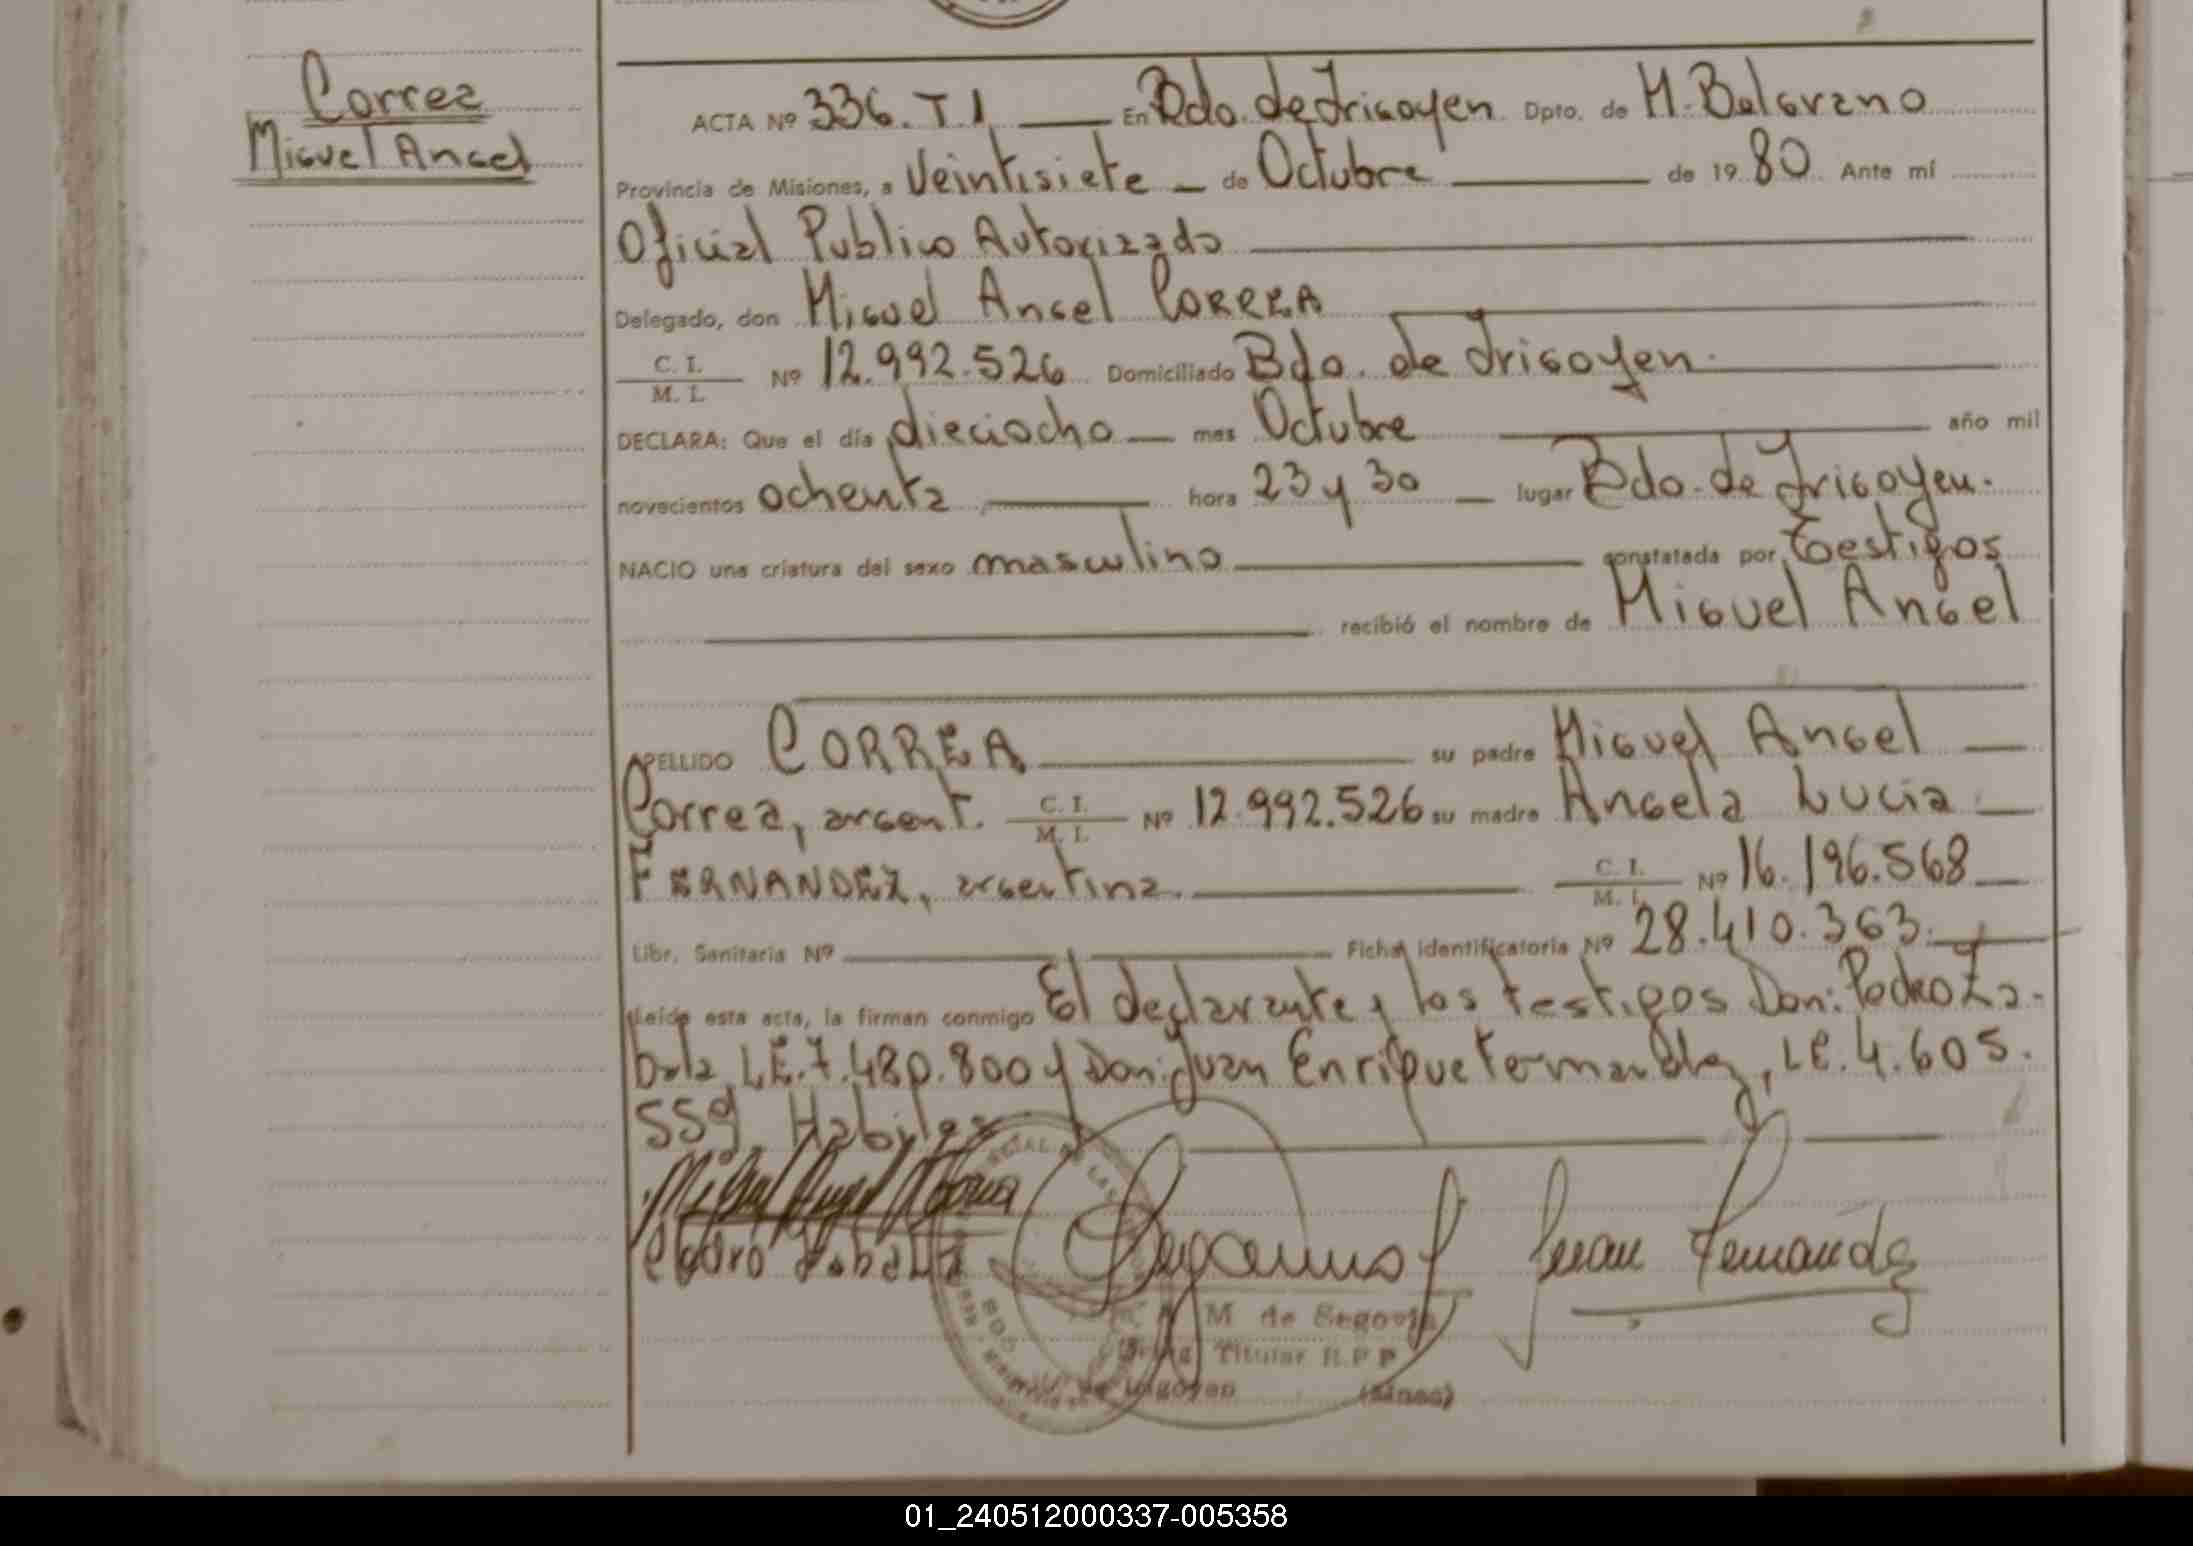 Correa
Miguel Angel
ACTA Nº 336. T I En Bdo. de Irigoyen Dpto. de M. Belgrano
Provincia de Misiones, a Veintisiete de Octubre de 19 80 Ante mí
Oficial Publico Autorizado
Delegado, don Miguel Angel CORREA
C. I. / M. I. Nº 12.992.526 Domiciliado Bdo. de Irigoyen.
DECLARA: Que el día dieciocho mes Octubre año mil
novecientos ochenta hora 23 y 30 lugar Bdo. de Irigoyen.
NACIO una criatura del sexo masculino constatada por Testigos
recibió el nombre de Miguel Angel
APELLIDO CORREA su padre Miguel Angel
Correa, argent. C. I. / M. I. Nº 12.992.526 su madre Angela Lucia
FERNANDEZ, argentina. C. I. / M. I. Nº 16.196.568
Libr. Sanitaria Nº Ficha identificatoria Nº 28.410.363.
Leída esta acta, la firman conmigo El declarante y los testigos Don: Pedro Za-
bala, L.E. 7.480.800 y Don: Juan Enrique Fernandez, L.E. 4.605.
559. Habiles
Miguel Angel Correa
Pedro Zabala
Juan Fernandez
M de Segovia
Titular R.P.P
de Irigoyen (Mnes)
01_240512000337-005358